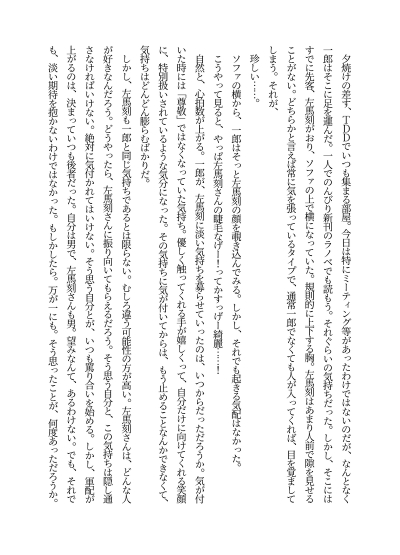 夕焼けの差す、ＴＤＤでいつも集まる部屋。今日は特にミーティング等があったわけではないのだが、なんとなく
一郎はそこに足を運んだ。一人でのんびり新刊のラノベでも読もう。それぐらいの気持ちだった。しかし、そこには
すでに先客、左馬刻がおり、ソファの上で横になっていた。規則的に上下する胸。左馬刻はあまり人前で隙を見せる
ことがない。どちらかと言えば常に気を張っているタイプで、通常一郎でなくても人が入ってくれば、目を覚まして
しまう。それが、
珍しい……。
ソファの横から、一郎はそっと左馬刻の顔を覗き込んでみる。しかし、それでも起きる気配はなかった。
こうやって見ると、やっぱ左馬刻さんの睫毛なげー！ってかすっげー綺麗……！
自然と、心拍数が上がる。一郎が、左馬刻に淡い気持ちを募らせていったのは、いつからだっただろうか。気が付
いた時には「尊敬」ではなくなっていた気持ち。優しく触ってくれる手が嬉しくって、自分だけに向けてくれる笑顔
に、特別扱いされているような気分になった。その気持ちに気が付いてからは、もう止めることなんかできなくて、
気持ちはどんどん膨らむばかりだ。
しかし、左馬刻も一郎と同じ気持ちであるとは限らない。むしろ違う可能性の方が高い。左馬刻さんは、どんな人
が好きなんだろう。どうやったら、左馬刻さんに振り向いてもらえるだろう。そう思う自分と、この気持ちは隠し通
さなければいけない。絶対に気付かれてはいけない。そう思う自分とが、いつも罵り合いを始める。しかし、軍配が
上がるのは、決まっていつも後者だった。自分は男で、左馬刻さんも男。望みなんて、あるわけない。でも、それで
も、淡い期待を抱かないわけではなかった。もしかしたら。万が一にも。そう思ったことが、何度あっただろうか。